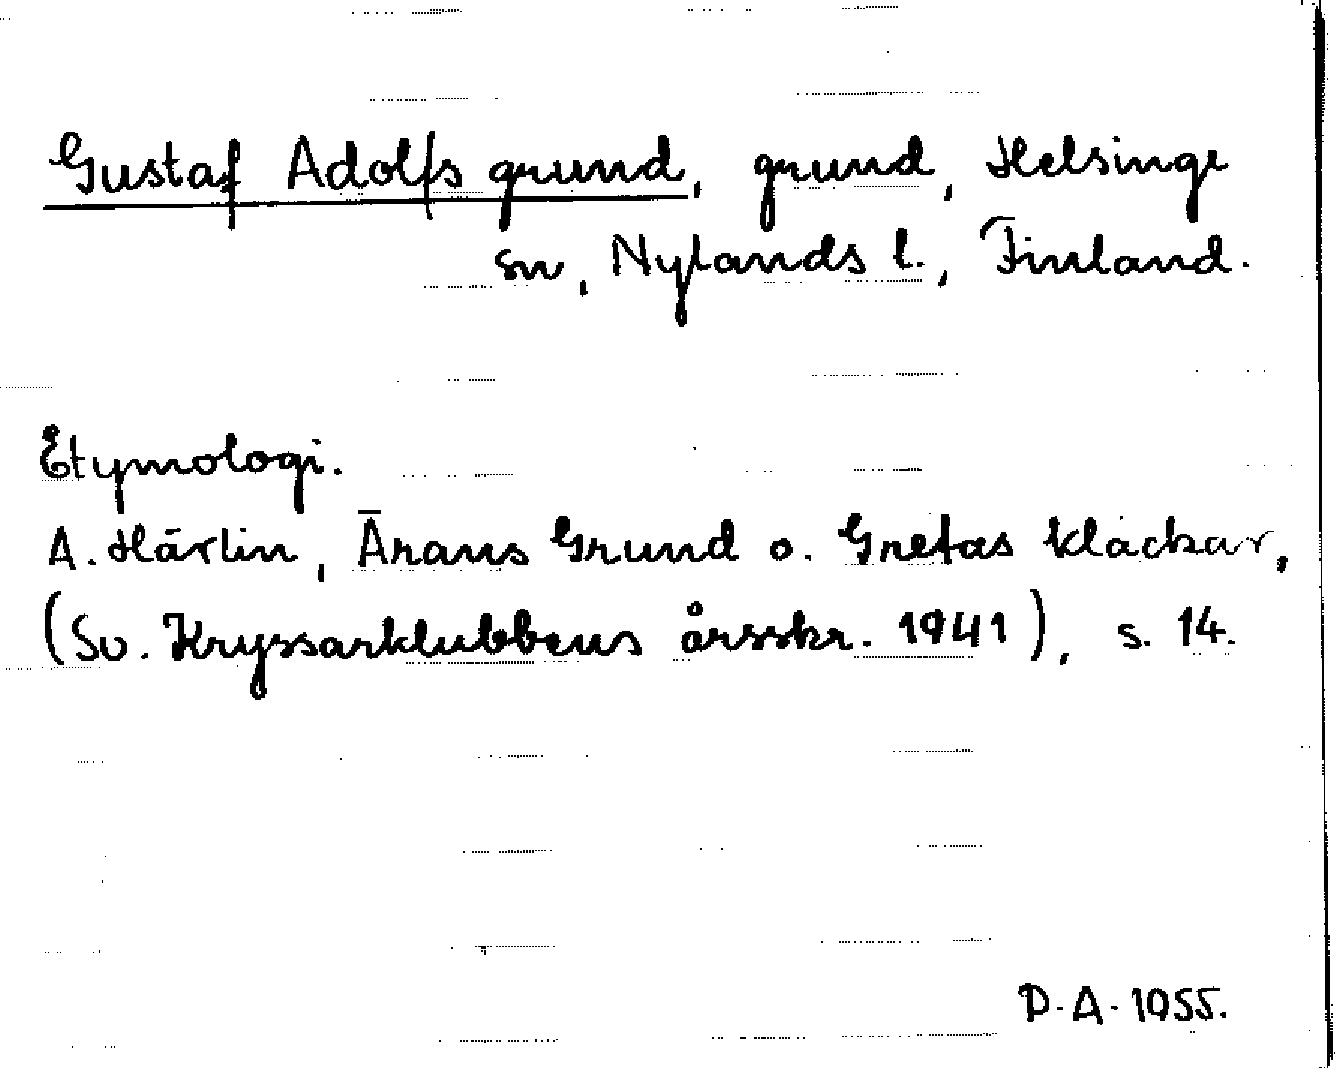 Gustaf Adolfs grund, grund, Helsinge
sn, Nylands l., Finland.
Etymologi.
A. Härlin, Ärans Grund o. Gretas klackar,
(Sv. Kryssarklubbens årsskr. 1941), s. 14.
D.A. 1055.